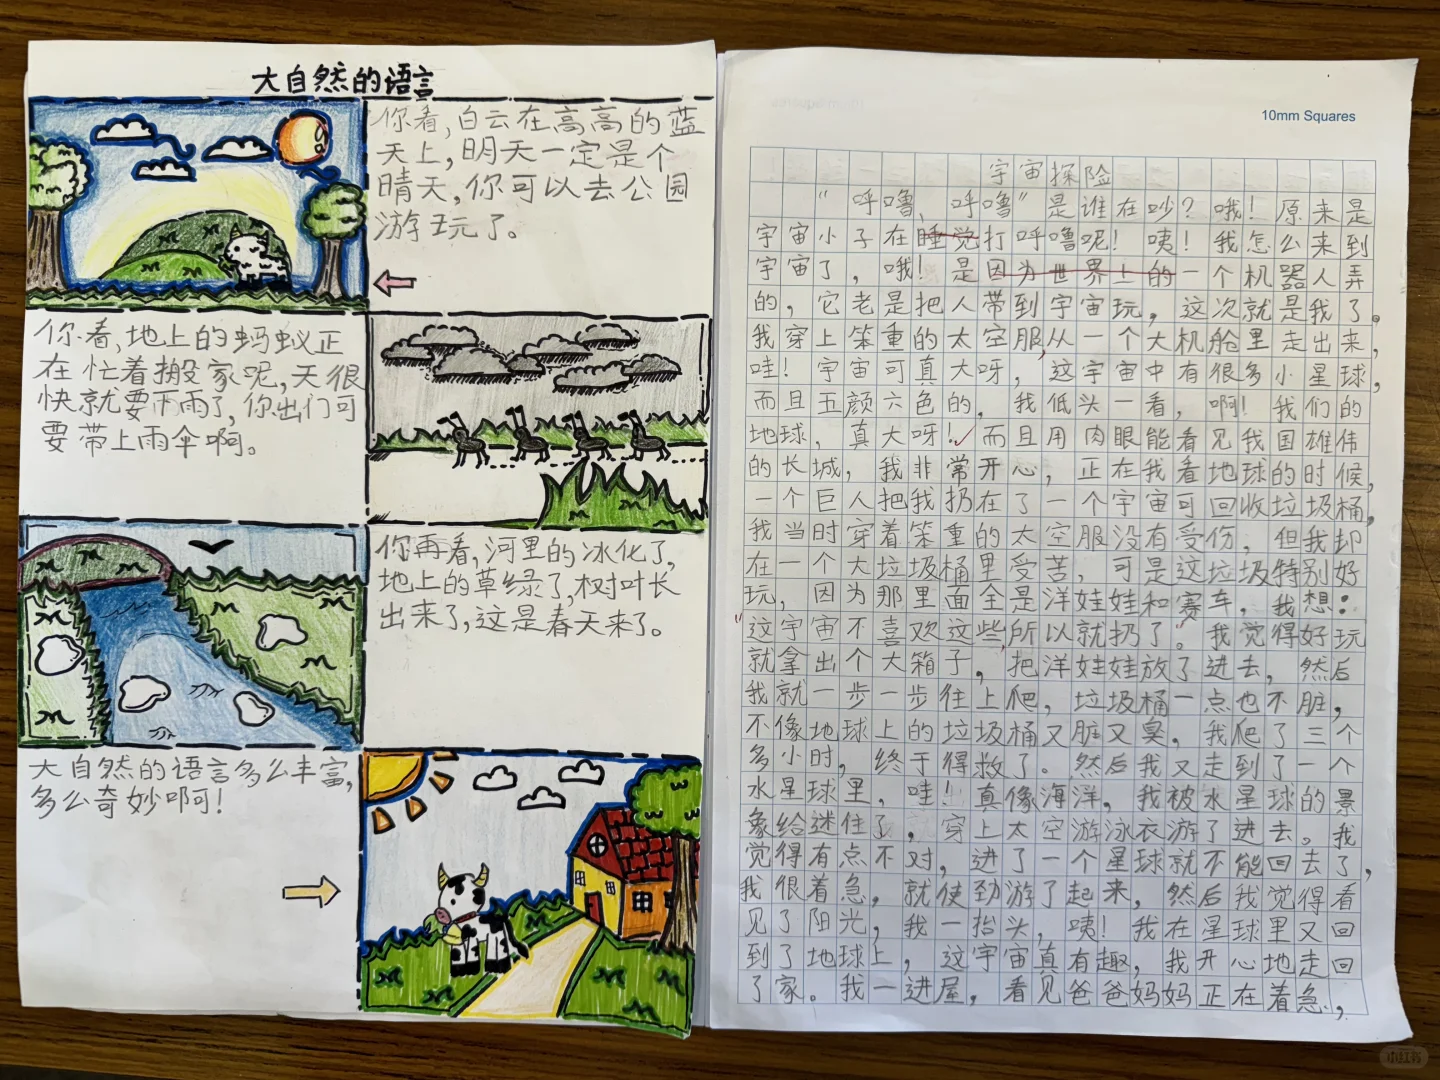 大自然的语言
你看,白云在高高的蓝
天上,明天一定是个
晴天,你可以去公园
游玩了。
你看,地上的蚂蚁正
在忙着搬家呢,天很
快就要下雨了,你出们可
要带上雨伞啊。
你再看,河里的冰化了,
地上的草绿了,树叶长
出来了,这是春天来了。
大自然的语言多么丰富,
多么奇妙啊!
10mm Squares
宇宙探险
“呼噜、呼噜”是谁在吵?哦!原来是
宇宙小子在睡觉打呼噜呢!咦!我怎么来到
宇宙了,哦!是因为世界上的一个机器人弄
的,它老是把人带到宇宙玩,这次就是我了。
我穿上笨重的太空服,从一个大机舱里走出来,
哇!宇宙可真大呀,这宇宙中有很多小星球,
而且五颜六色的,我低头一看,啊!我们的
地球,真大呀!而且用肉眼能看见我国雄伟
的长城,我非常开心,正在我看地球的时候,
一个巨人把我扔在了一个宇宙可回收垃圾桶,
我当时穿着笨重的太空服没有受伤,但我却
在一个大垃圾桶里受苦,可是这垃圾特别好
玩,因为那里面全是洋娃娃和赛车,我想:
“这宇宙不喜欢这些,所以就扔了”我觉得好玩
就拿出个大箱子,把洋娃娃放了进去,然后
我就一步一步往上爬,垃圾桶一点也不脏,
不像地球上的垃圾桶又脏又臭,我爬了三个
多小时,终于得救了。然后我又走到了一个
水星球里,哇!真像海洋,我被水星球的景
象给迷住了,穿上太空游泳衣游了进去。我
觉得有点不对,进了一个星球就不能回去了,
我很着急,就使劲游了起来,然后我觉得看
见了阳光,我一抬头,咦!我在星球里又回
到了地球上,这宇宙真有趣,我开心地走回
了家。我一进屋,看见爸爸妈妈正在着急,
小红书